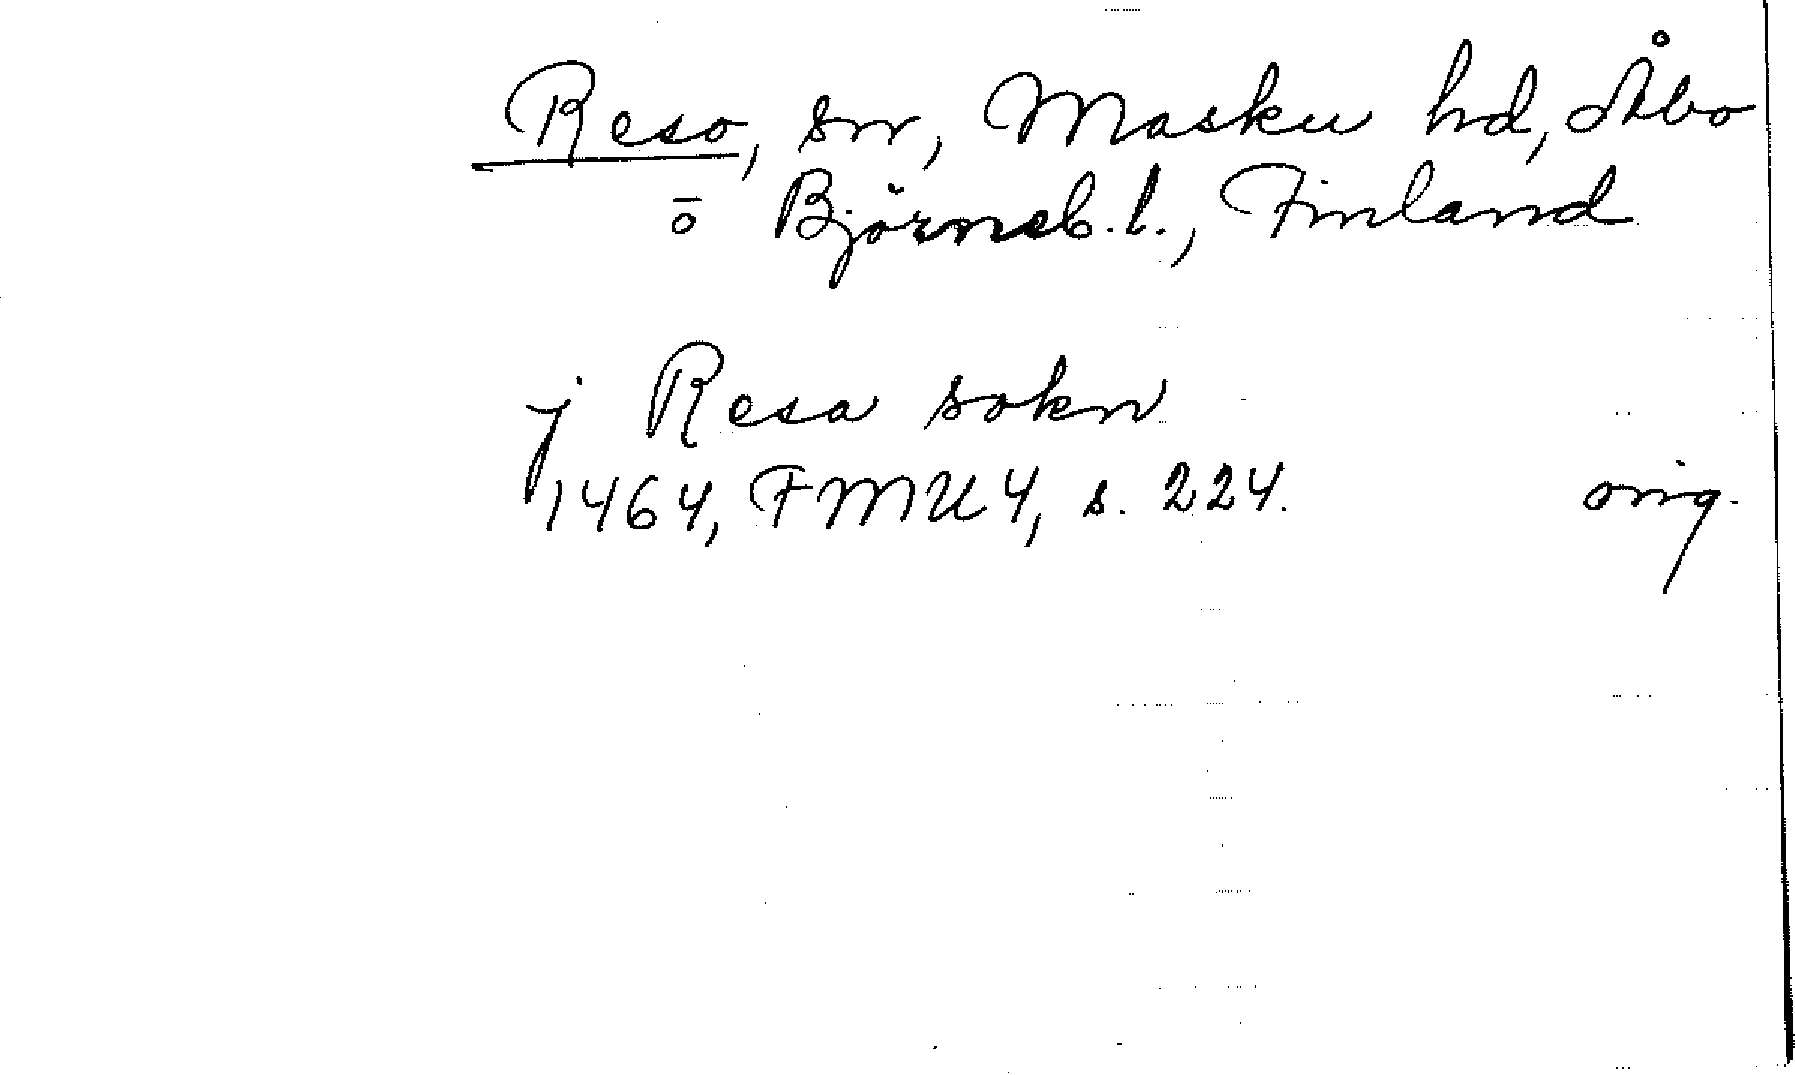 Reso, sn, Masku hd, Åbo
ō Björneb. l., Finland
j Resa sokn
1464, FMU 4, s. 224. orig.